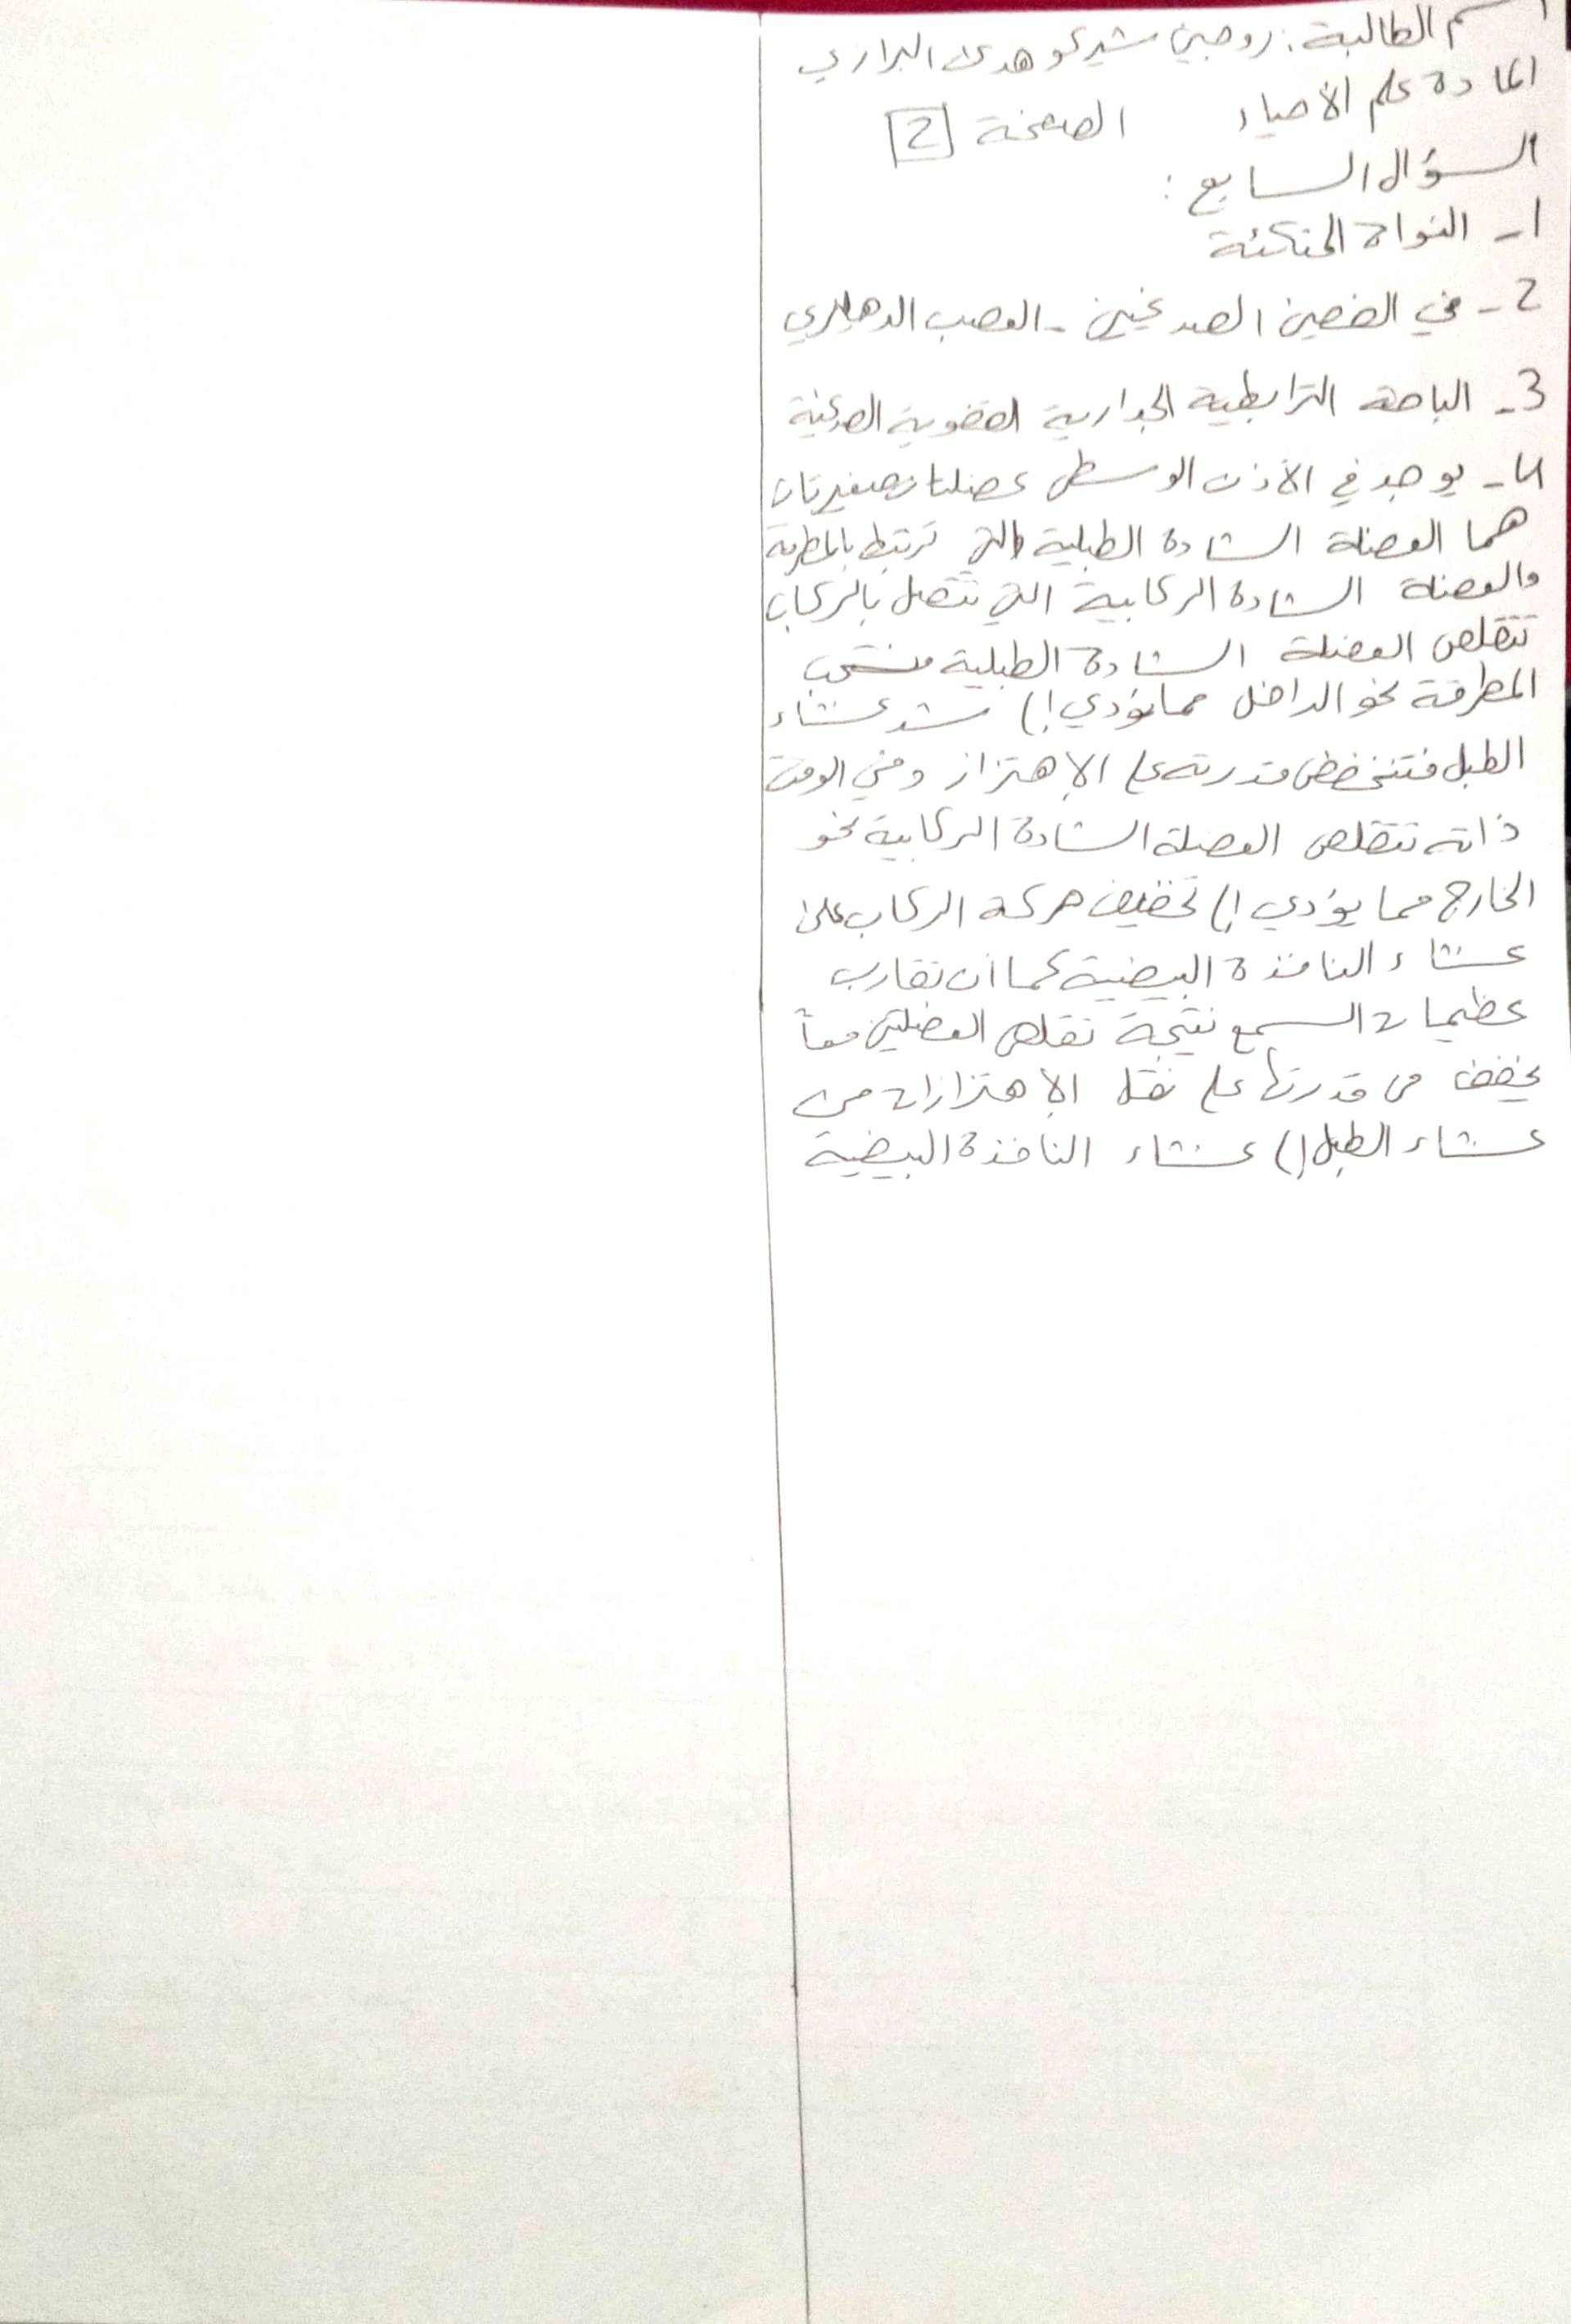 اسم الطالبة: روجين شيركو هدى البرازي
المادة علم الأحياء الصفحة 2
السؤال السابع:
1- النواة المتكئة
2- في الفصين الصدغيين - العصب الدهليزي
3- الباحة الترابطية الجدارية القفوية الصدغية
4- يوجد في الأذن الوسطى عضلتان صغيرتان
هما العضلة الشادة الطبلية والتي ترتبط بالمطرقة
والعضلة الشادة الركابية التي تتصل بالركاب
تتقلص العضلة الشادة الطبلية فتسحب
المطرقة نحو الداخل مما يؤدي إلى شد غشاء
الطبل فتنخفض قدرته على الاهتزاز وفي الوقت
ذاته تتقلص العضلة الشادة الركابية نحو
الخارج مما يؤدي إلى تخفيف حركة الركاب على
غشاء النافذة البيضية كما أن تقارب
عظيمات السمع نتيجة تقلص العضلتين معاً
يخفف من قدرتها على نقل الاهتزازات من
غشاء الطبل إلى غشاء النافذة البيضية